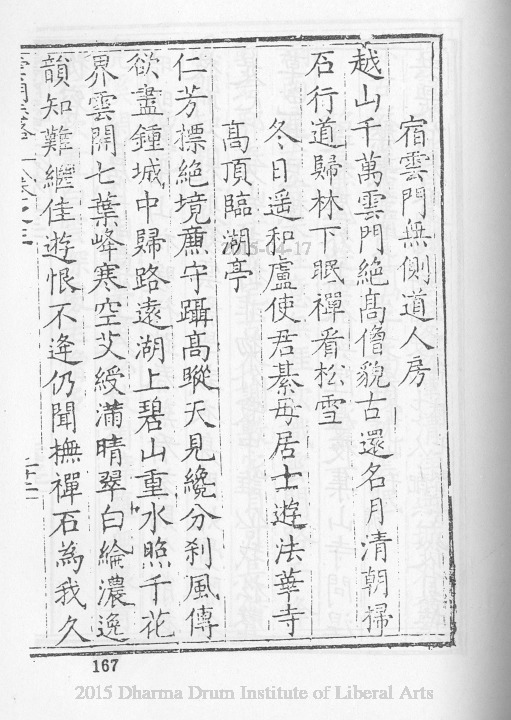 宿雲門無側道人房
越山千萬雲門絕髙僧貌古還名月清朝掃
石行道歸林下眠禪看松雪
冬日遥和盧使君綦毋居士遊法華寺
髙頂臨湖亭
仁芳摽絕境亷守躡髙蹤天見纔分刹風傳
欲盡鍾城中歸路遠湖上碧山重水照千花
界雲開七葉峰寒空艾綬滿晴翠白綸濃逸
韻知難繼佳遊恨不逢仍聞撫禪石為我久
167
2015-04-17
2015 Dharma Drum Institute of Liberal Arts